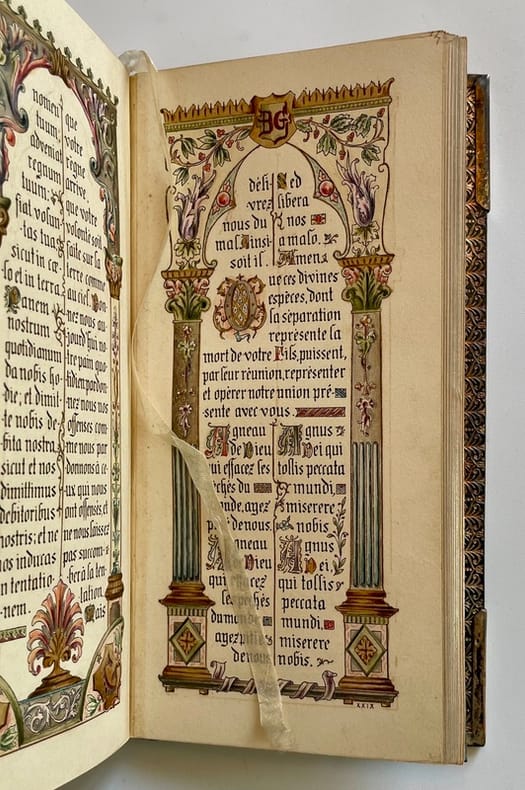 nomen
tuum;
adveniat
regnum
tuum;
fiat volun
tas tua
sicut in cœ
lo et in terra
Panem
nostrum
quotidianum
da nobis ho
die; et dimit
te nobis de-
bita nostra
sicut et nos
dimittimus
debitoribus
nostris; et ne
nos inducas
in tentatio-
nem.
que
votre
règne
arrive,
que votre
volonté soit
faite sur la
terre comme
au ciel. Don
nez nous au-
jourd'hui no
tre pain quo
tidien; pardon
nez nous nos
offenses com
me nous par
donnons à ce-
ux qui nous
ont offensés; et
ne nous laissez
pas succom-
ber à la ten-
tation
Mais
BG
déli-
vrez
nous du
mal. Ainsi
soit il.
Sed
libera
nos
a malo.
Amen
Que ces divines
espèces, dont
la séparation
représente la
mort de votre Fils, puissent,
par leur réunion, représenter
et opérer notre union pré-
sente avec vous.
Agneau
de Dieu
qui effacez ses
péchés du
monde, ayez
pitié de nous.
Agneau
de Dieu
qui effacez
les péchés
du monde
ayez pitié
de nous
Agnus
Dei qui
tollis peccata
mundi,
miserere
nobis
Agnus
Dei,
qui tollis
peccata
mundi,
miserere
nobis.
XXIX